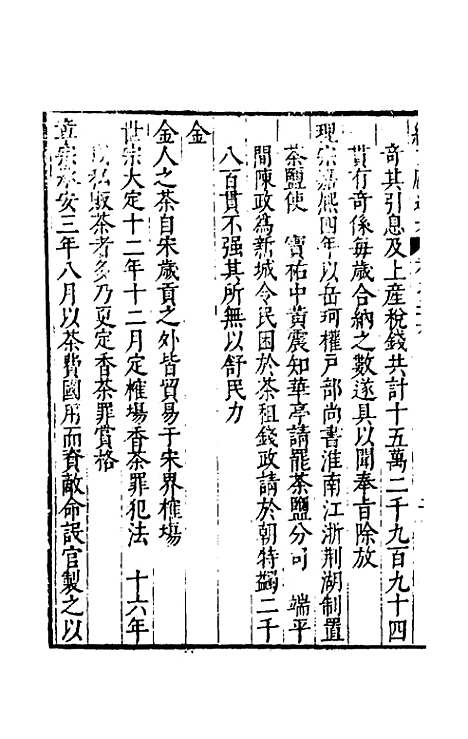 奇其引息及上產稅錢共計十五萬二千九百九十四
貫有奇係每歲合納之數遂具以聞奉旨除放
理宗嘉熙四年以岳珂權戶部尚書淮南江浙荊湖制置
茶鹽使　寶祐中黃震知華亭請罷茶鹽分司　端平
間陳政為新城令民困於茶租錢政請於朝特蠲二千
八百貫不强其所無以舒民力
金
金人之茶自宋歲貢之外皆貿易于宋界榷場
世宗大定十二年十二月定榷場香茶罪犯法　十六年
以私販茶者多乃更定香茶罪賞格
章宗承安三年八月以茶費國用而資敵命設官製之以